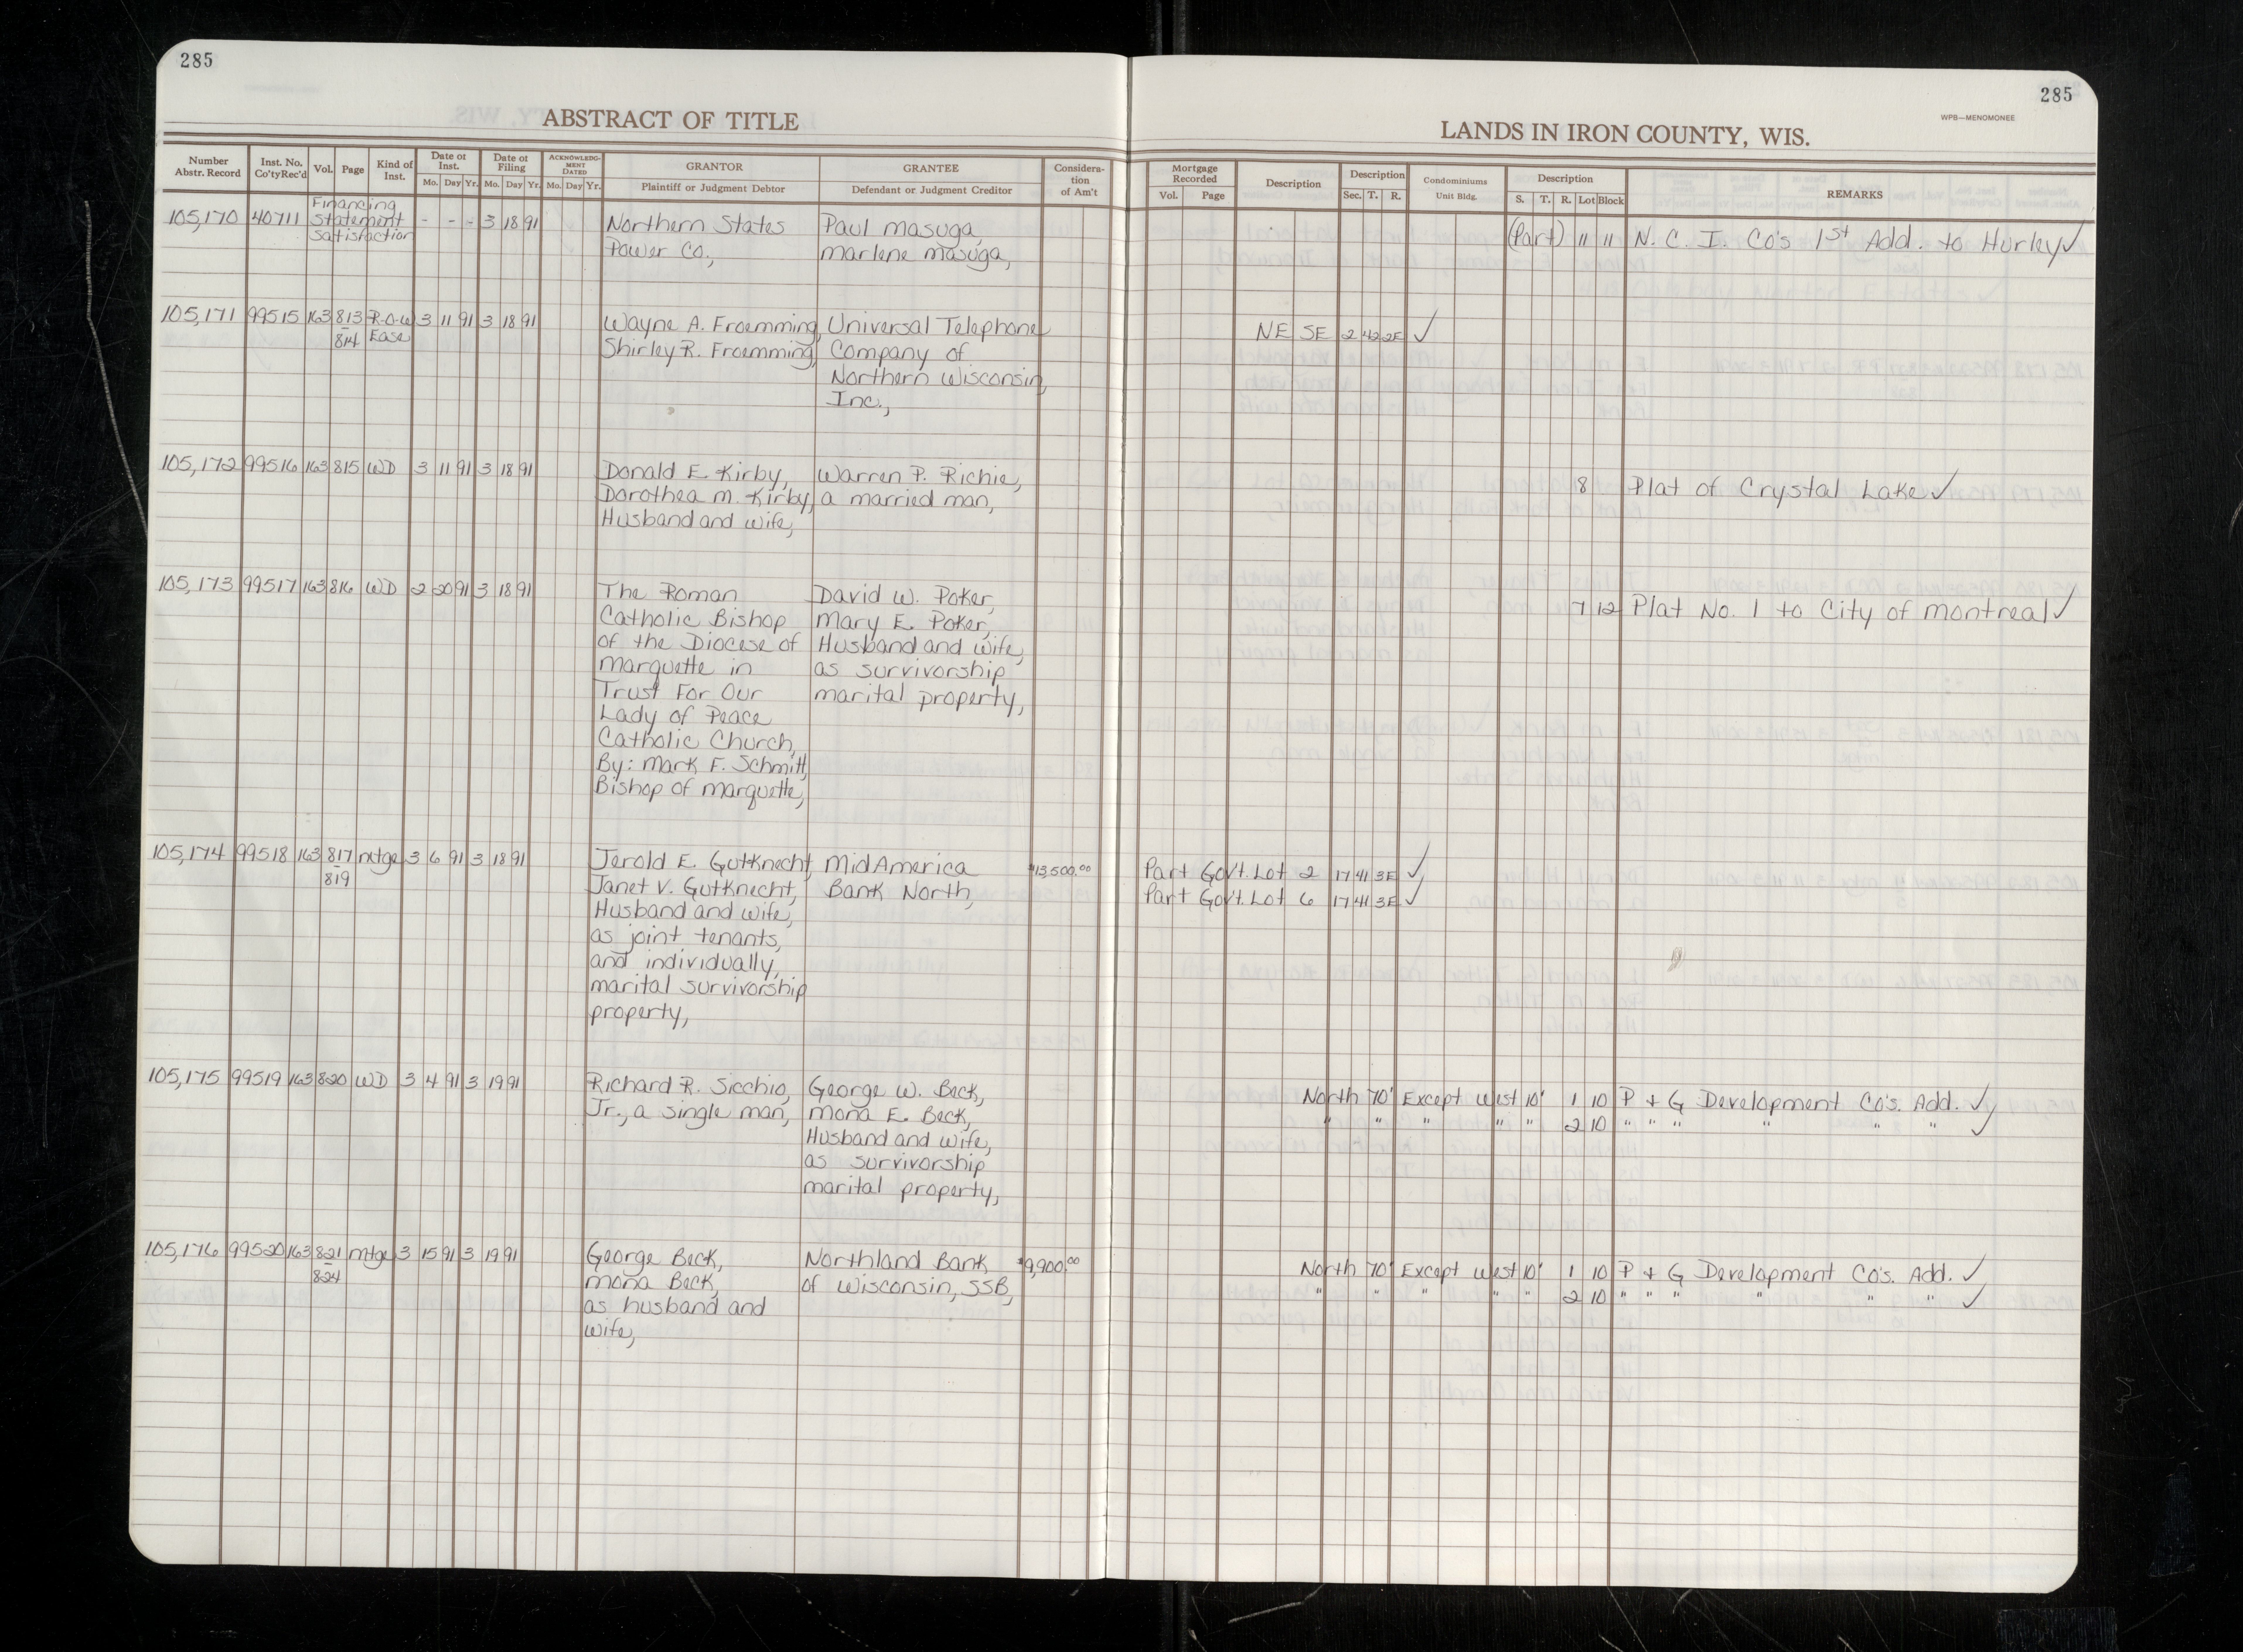 285
ABSTRACT OF TITLE
Number Abstr. Record Inst. No. Co'ty Rec'd Vol. Page Kind of Inst. Date of Inst. Mo. Day Yr. Date of Filing Mo. Day Yr. ACKNOWLEDGMENT DATED Mo. Day Yr. GRANTOR Plaintiff or Judgment Debtor GRANTEE Defendant or Judgment Creditor Consideration of Am't
105,170 40711 Financing Statement Satisfaction - - - 3 18 91 Northern States Paul Masuga,
Power Co., Marlene Masuga,
105,171 99515 163 813 R-O-W 3 11 91 3 18 91 Wayne A. Froemming, Universal Telephone
814 Ease Shirley R. Froemming, Company of
Northern Wisconsin,
Inc.,
105,172 99516 163 815 WD 3 11 91 3 18 91 Donald E. Kirby, Warren P. Richie,
Dorothea M. Kirby, a married man,
Husband and wife,
105,173 99517 163 816 WD 2 20 91 3 18 91 The Roman David W. Poker,
Catholic Bishop Mary E. Poker,
of the Diocese of Husband and wife,
Marquette in as survivorship
Trust For Our marital property,
Lady of Peace
Catholic Church,
By: Mark F. Schmitt,
Bishop of Marquette,
105,174 99518 163 817 mtge 3 6 91 3 18 91 Jerold E. Gutknecht, MidAmerica $13,500.00
819 Janet V. Gutknecht, Bank North,
Husband and wife,
as joint tenants,
and individually,
marital survivorship
property,
105,175 99519 163 820 WD 3 4 91 3 19 91 Richard R. Sicchio, George W. Beck,
Jr., a single man, Mona E. Beck,
Husband and wife,
as survivorship
marital property,
105,176 99520 163 821 mtge 3 15 91 3 19 91 George Beck, Northland Bank $9,900.00
824 Mona Beck, of Wisconsin, SSB,
as husband and
wife,
285
WPB—MENOMONEE
LANDS IN IRON COUNTY, WIS.
Mortgage Recorded Vol. Page Description Description Sec. T. R. Condominiums Unit Bldg. Description S. T. R. Lot Block REMARKS
(Part) 11 11 N. C. I. Co's 1st Add. to Hurley ✓
NE SE 2 42 2E ✓
8 Plat of Crystal Lake ✓
7 12 Plat No. 1 to City of Montreal ✓
Part Gov't. Lot 2 17 41 3E ✓
Part Gov't. Lot 6 17 41 3E ✓
North 70' Except West 10' 1 10 P + G Development Co's. Add. ✓
" " " " " 2 10 " " " " " " ✓
North 70' Except West 10' 1 10 P + G Development Co's. Add. ✓
" " " " " 2 10 " " " " " " ✓